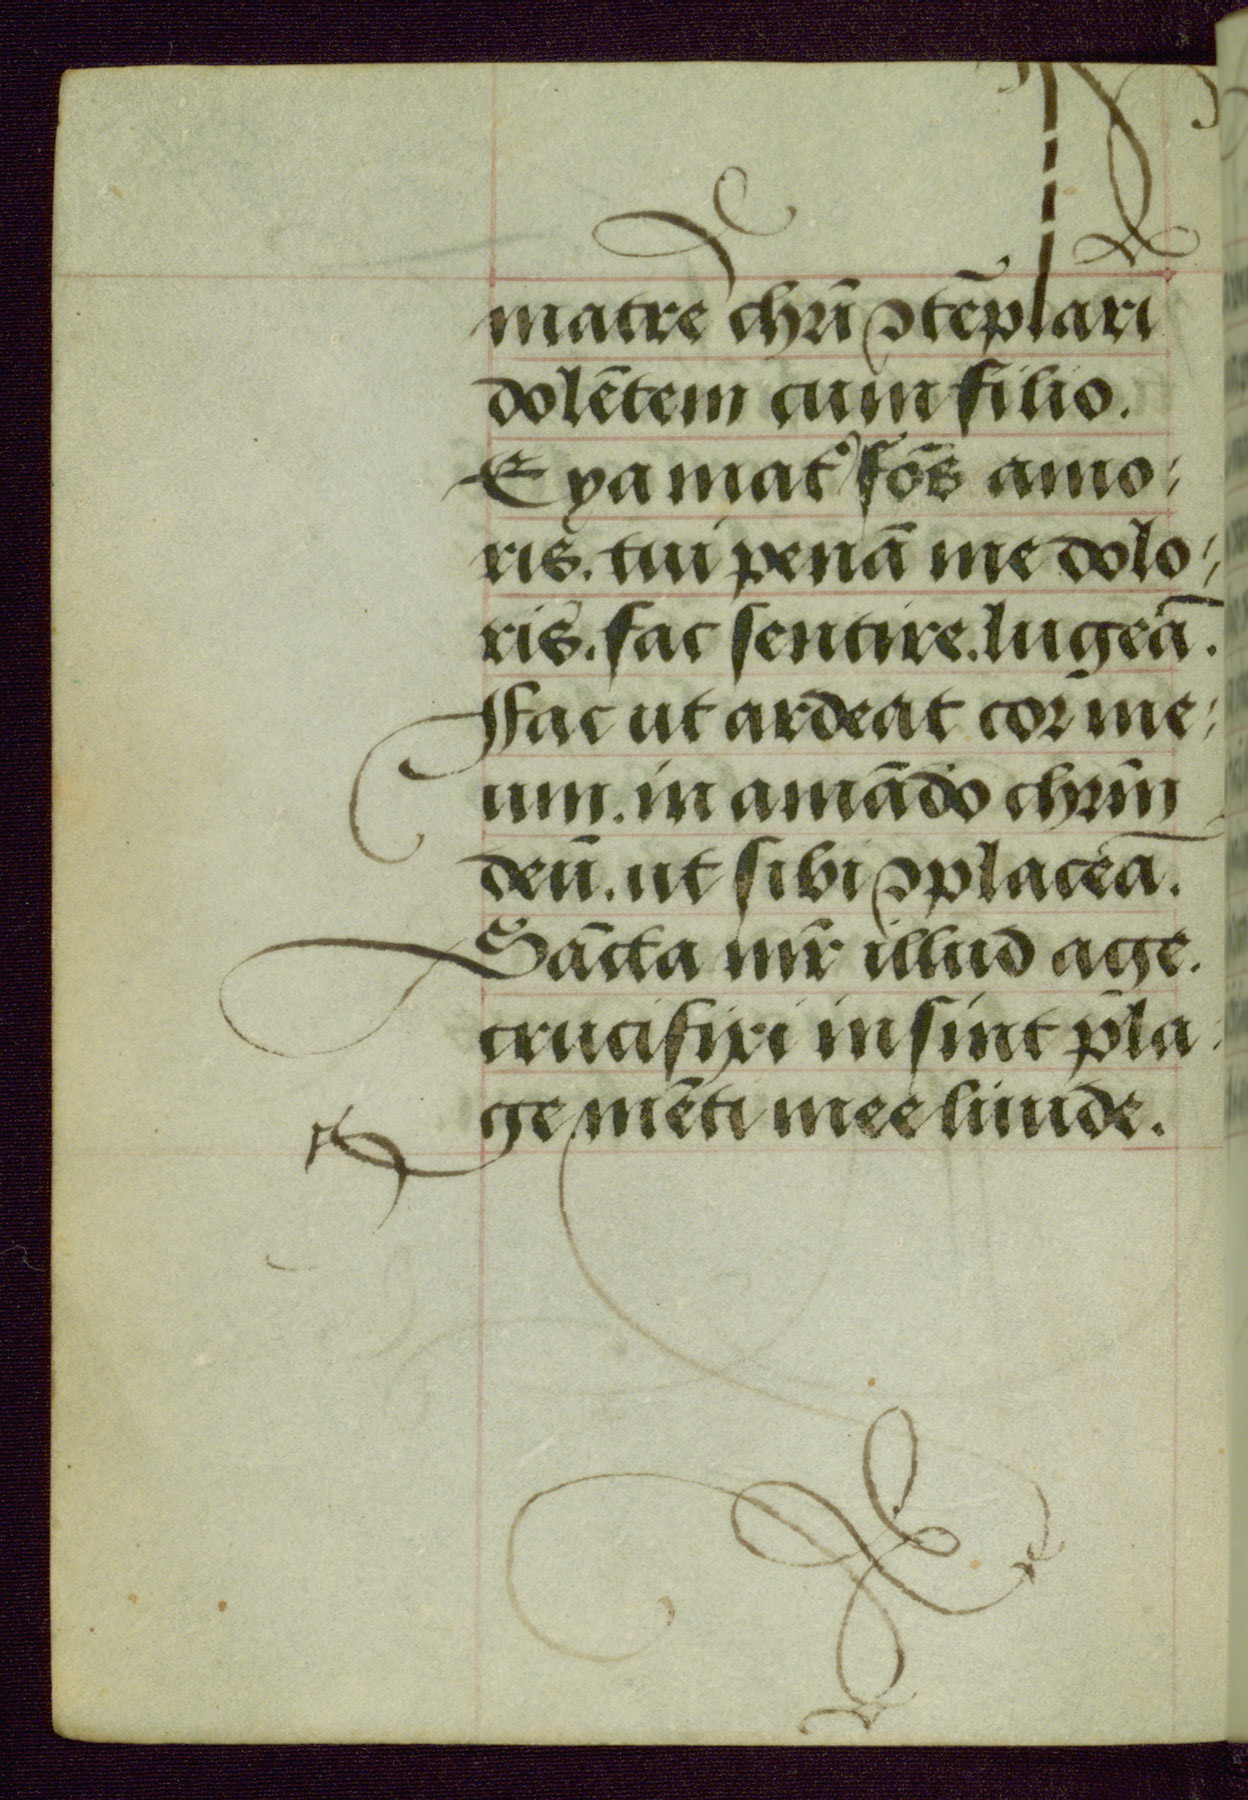 matre chr̄i ꝯtēplari
dolētem cum filio.
Eya mat᷒ fōs amo⸗
ris. tui penā me dolo⸗
ris. fac sentire. lugeā.
Fac ut ardeat cor me⸗
um. in amādo chrīm
deū. ut sibi ꝯplaceā.
Sācta mr̄ illud age.
crucifixi in sint pla⸗
ge mēti mee liuide.